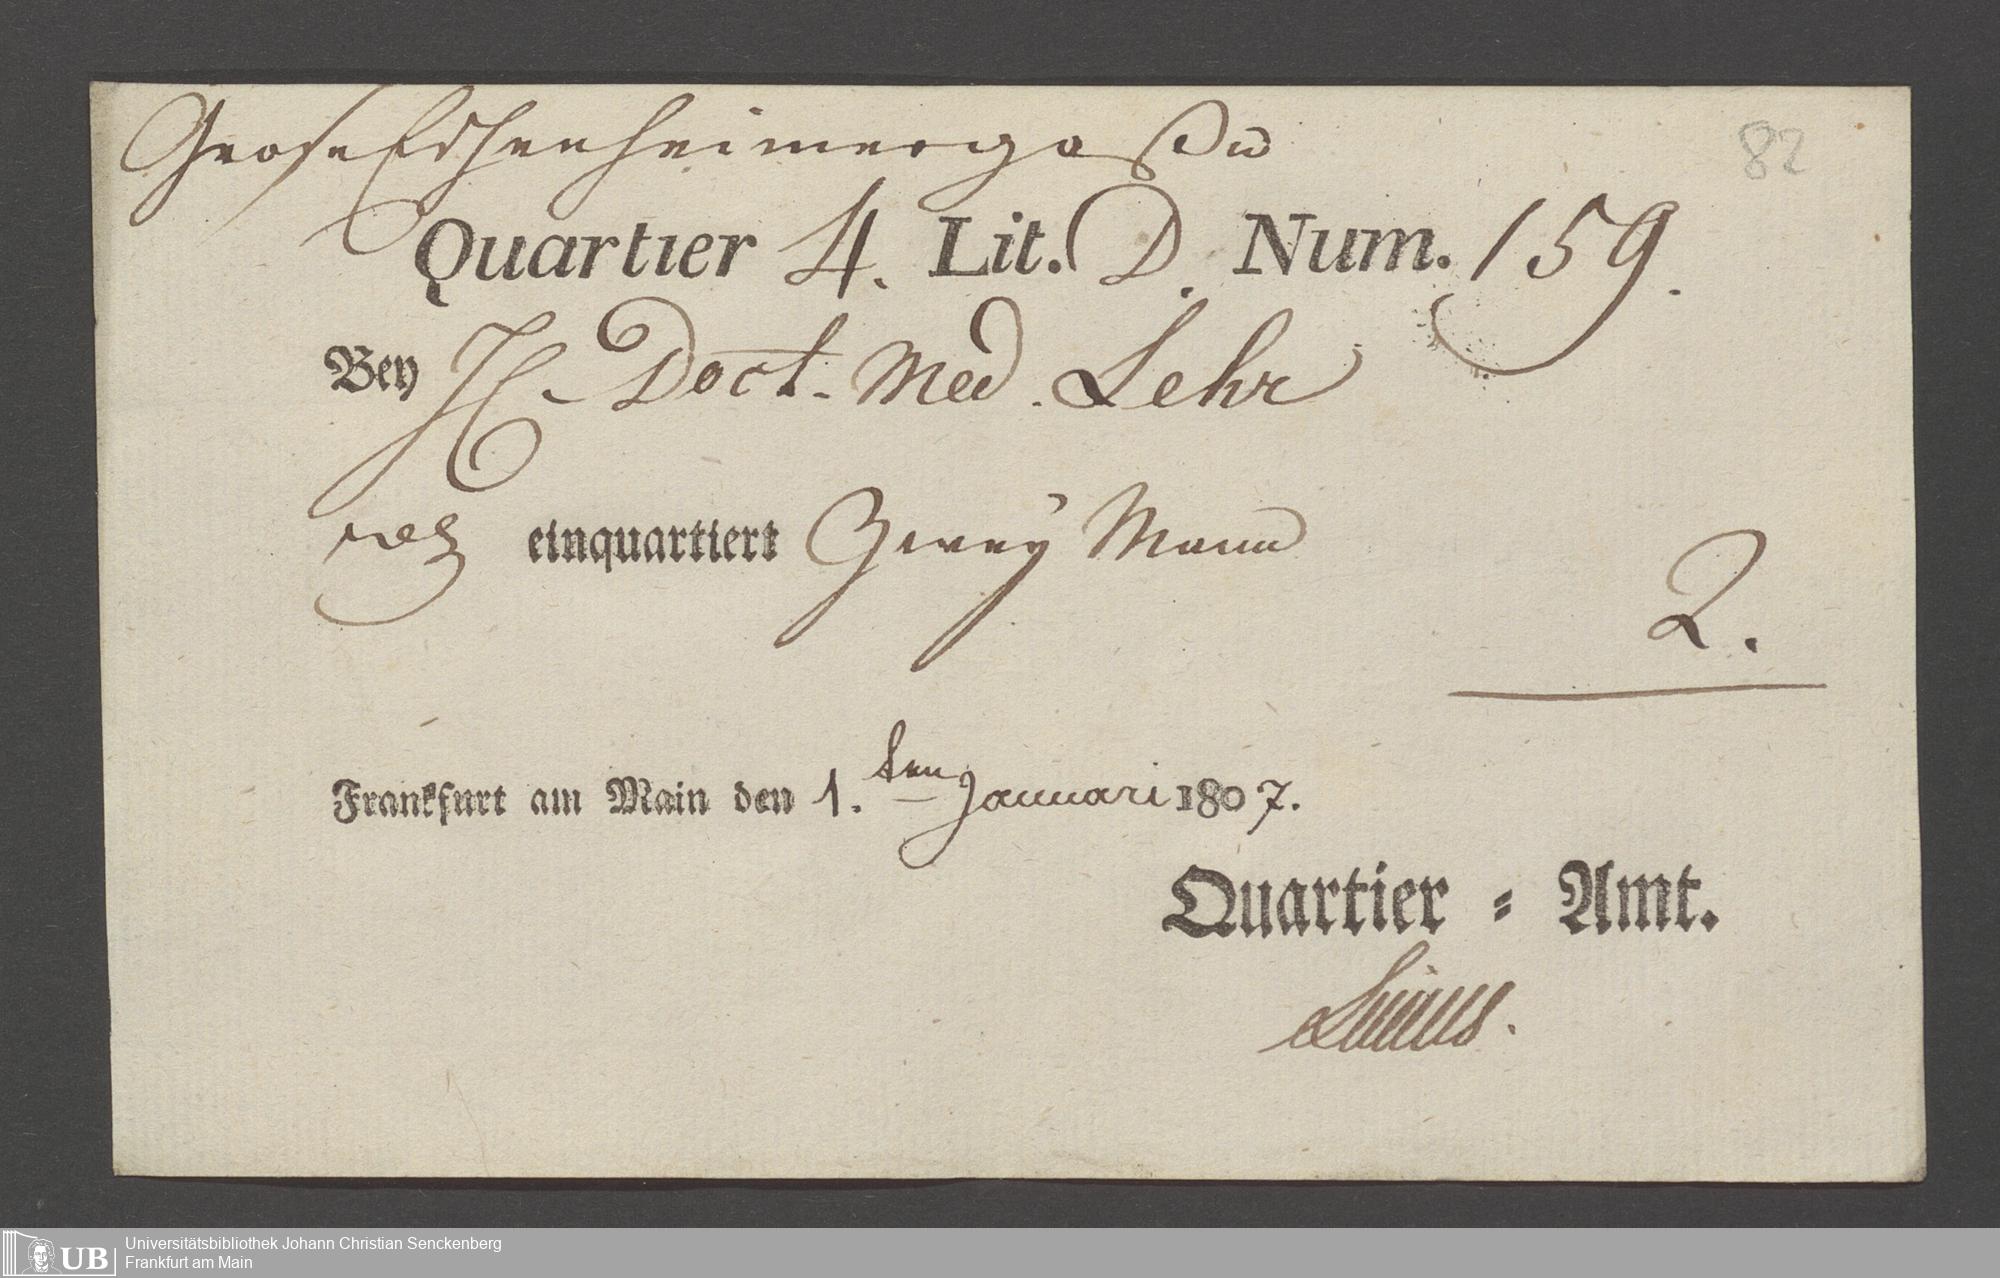 Grose Eschenheimergaße
82
Quartier 4. Lit. D. Num. 159.
Bey H. Doct. Med. Lehr
einquartiert Zwey Mann
2.
Frankfurt am Main den 1. ten Januari 1807.
Quartier = Amt.
UB Universitätsbibliothek Johann Christian Senckenberg
Frankfurt am Main